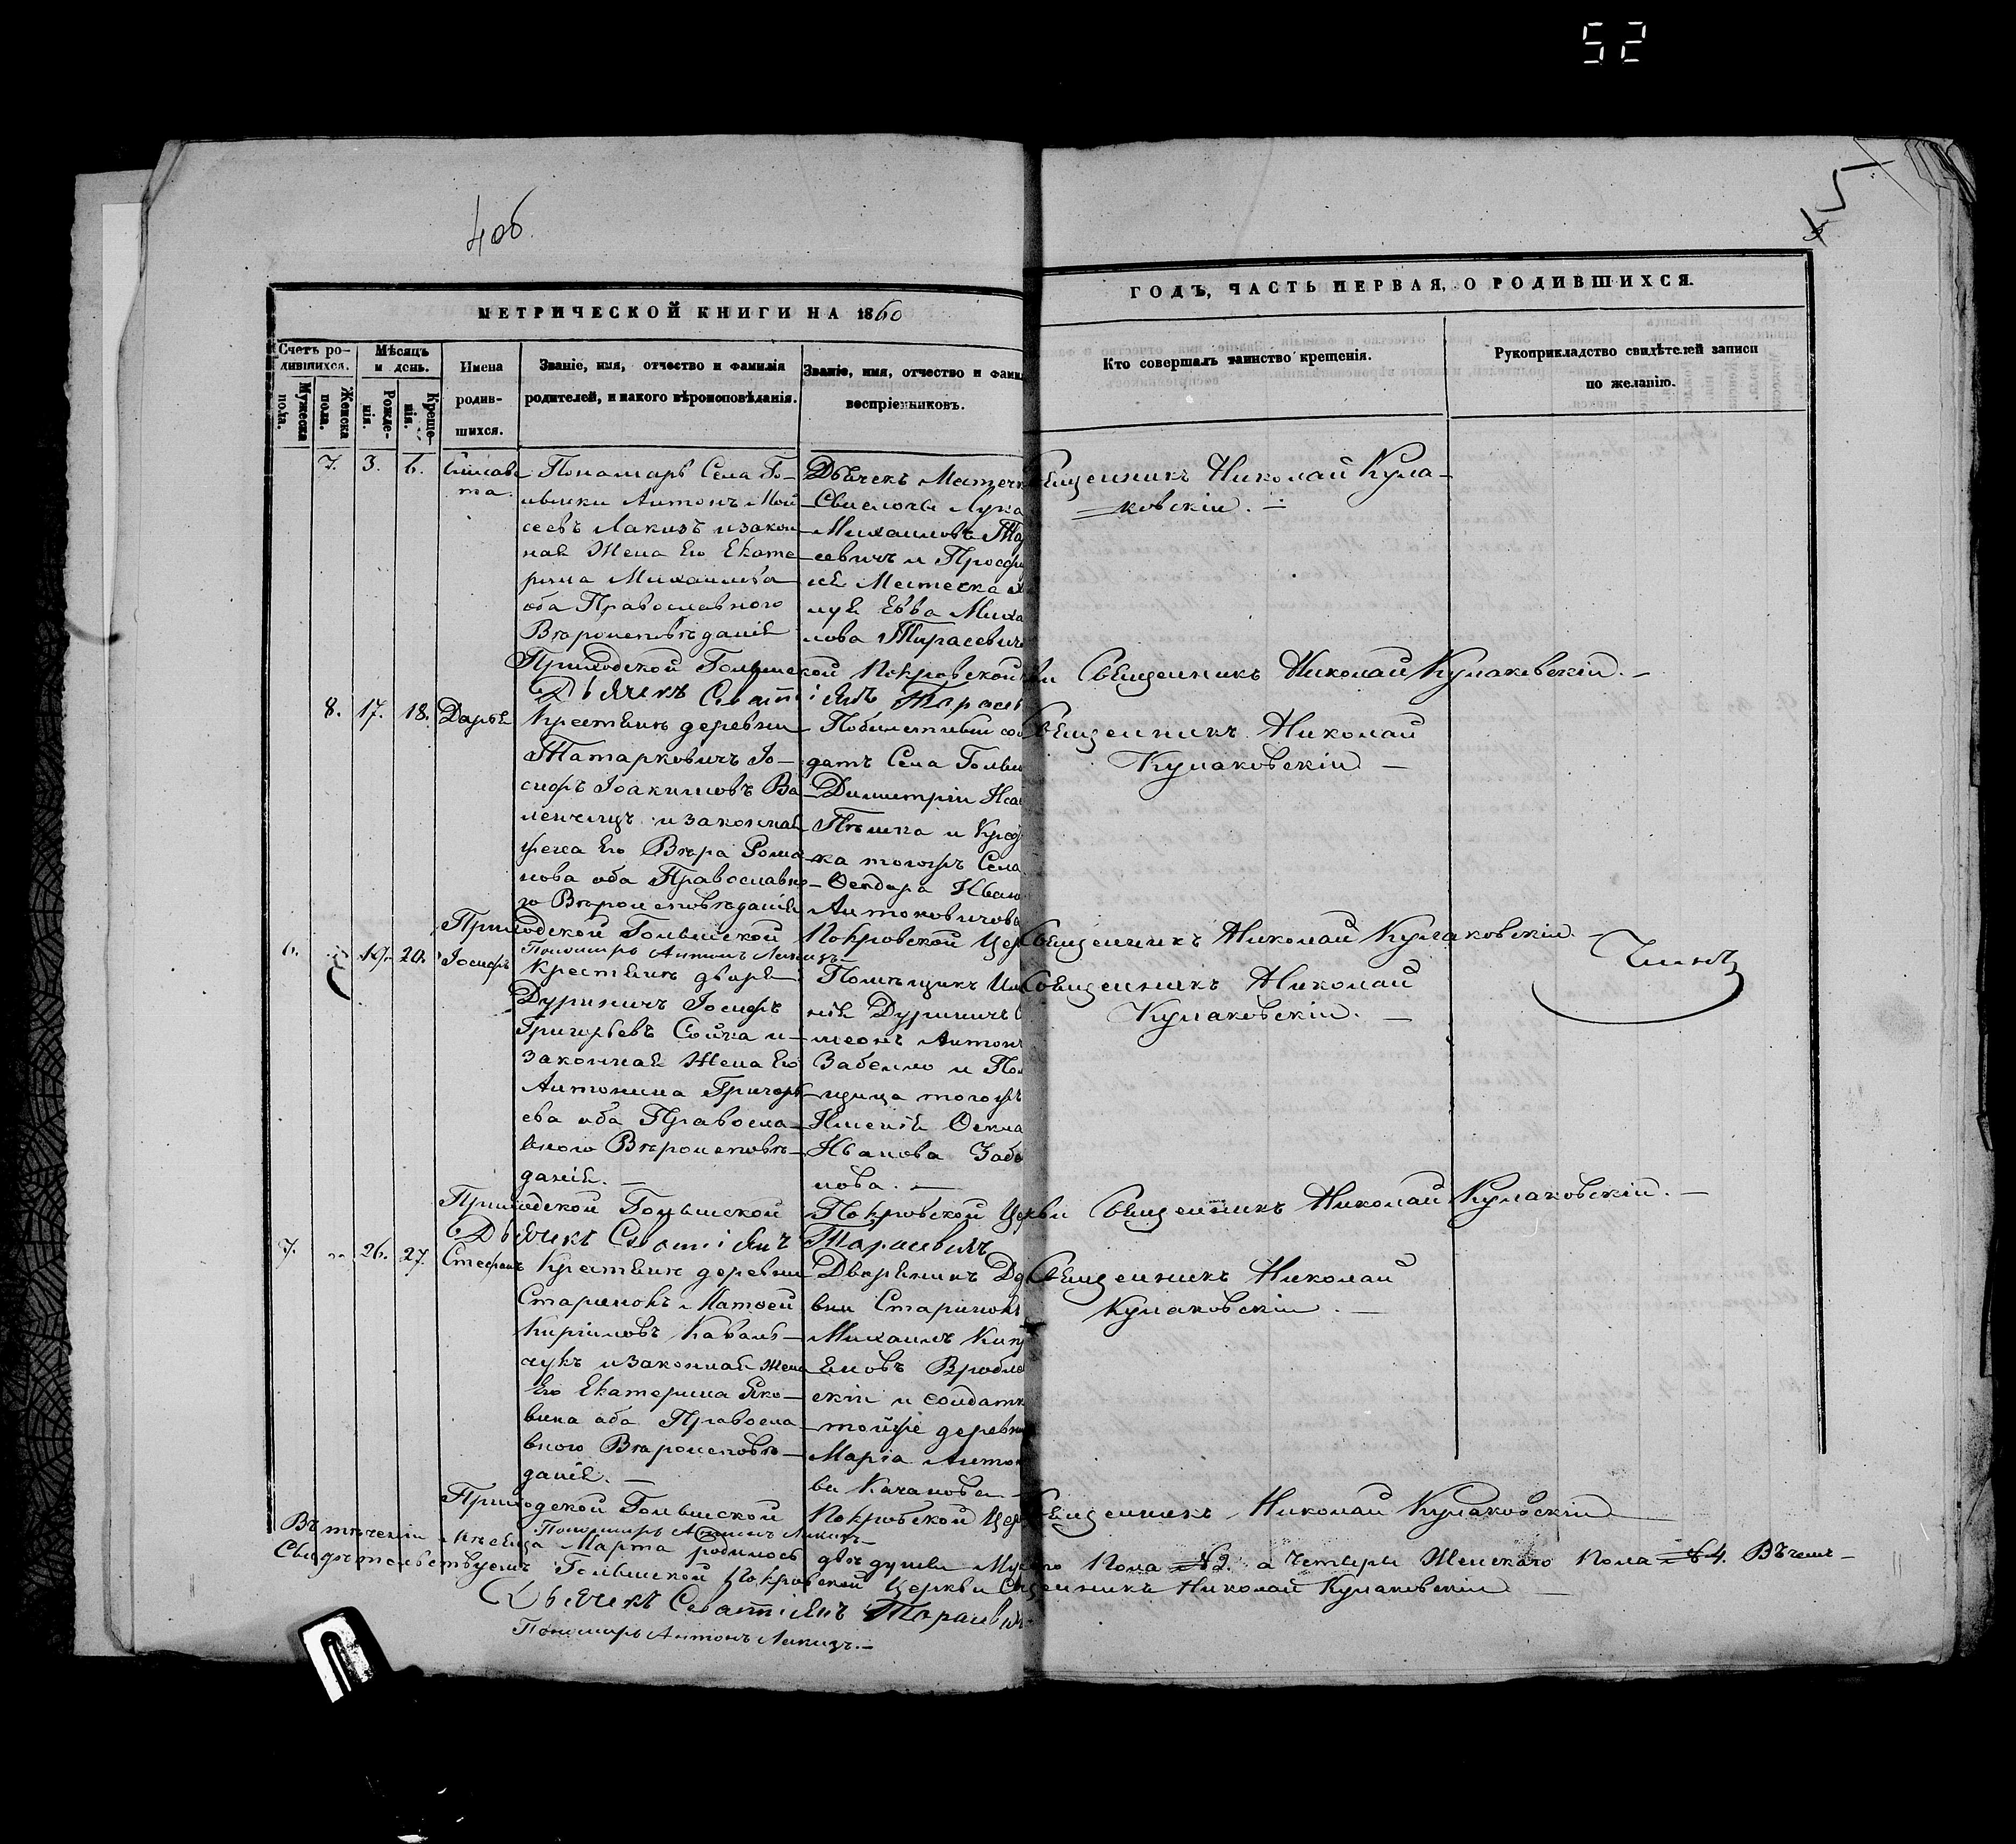 52
4об
5
МЕТРИЧЕСКОЙ КНИГИ НА 1860
ГОДЪ, ЧАСТЬ ПЕРВАЯ, О РОДИВШИХСЯ.
Счетъ ро-
дившихся.
Мужеска
пола.
Женска
пола.
Мѣсяцъ
и день.
Рожде-
нія.
Креще-
нія.
Имена
родив-
шихся.
Званіе, имя, отчество и фамилія
родителей, и какого вѣроисповѣданія.
Званіе, имя, отчество и фами
воспріемниковъ.
Кто совершалъ таинство крещенія.
Рукоприкладство свидѣтелей записи
по желанію.
7. 3. 6.
Елисаве
та.
Пономарь Села Го-
лынки Антонъ Мой
сеевъ Лакизъ и закон
ная Жена Его Екате
рина Михаилова
оба Православного
Вѣроисповѣданія
Дьячекъ Местечк
Свислочи Лука
Михаиловъ Та
севичъ и Просфи
ня Местечка
Евва Миха
лова Тарасевич
Священникъ Николай Кула-
ковскій.
Приходской Голынской Покровской
Священникъ Николай Кулаковскій.
Дьячекъ Севастіянъ Тарасев
8. 17. 18. Дарья
Крестьянъ деревни
Татарковичъ Іо-
сифъ Іоакимовъ Ва
ленчицъ и законная
жена Его Вѣра Рома
нова оба Православно
го Вѣроисповѣданія
Побилетный сол
датъ Села Голын
Димитрій Иса
Пѣшка и
ка тогожъ Села
Ѳеодора Иван
Антоновичова
Священникъ Николай
Кулаковскій
Приходской Голынской Покровской Цер
Священникъ Николай Кулаковскій.
Пономарь Антонъ Лакизъ
6. 19. 20. Іосифъ
Крестьянъ двора
Дуриничъ Іосифъ
Григорьевъ Сойка и
законная Жена Его
Антонина Григорь
ева оба Правосла-
вного Вѣроисповѣ-
данія.
Помѣщикъ Им
нія Дуриничъ
меонъ Антон
Забелло и По
щица тогожъ
Имѣнія Ѳекла
Иванова Забе
лова.
Священникъ Николай
Кулаковскій.
Приходской Голынской Покровской Церкви Священникъ Николай Кулаковскій.
Дьячекъ Севастіянъ Тарасевичъ
7. 26. 27. Стефанъ
Крестьянъ деревни
Стариновъ Матѳей
Кириловъ Каваль-
чукъ и законная жена
Его Екатерина Яко-
влева оба Правосла-
вного Вѣроисповѣ-
данія.
Дворянинъ Де
вни Стариновъ
Михаилъ
Вробле
скій и солдатк
тойже деревни
Марія Антон
ва Качанова
Священникъ Николай
Кулаковскій.
Приходской Голынской Покровской Цер
Священникъ Николай Кулаковскій
Пономарь Антонъ Лакизъ
Въ теченіи Мѣсяца Марта родилось двѣ души Му го Пола №2. а Четыри Женскаго Пола №4. Въ чемъ
Свидѣтельствуемъ Голынской Покровской Церкви Священникъ Николай Кулаковскій
Дьячекъ Севастіянъ Тарасевичъ
Пономарь Антонъ Лакизъ.